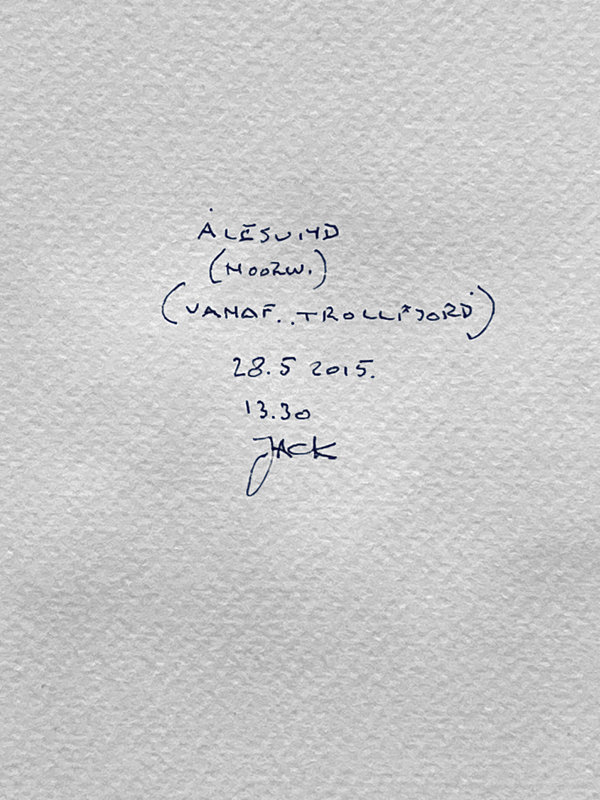 ÅLESUND
(NOORW.)
(VANAF..TROLLFJORD)
28.5 2015.
13.30
JACK